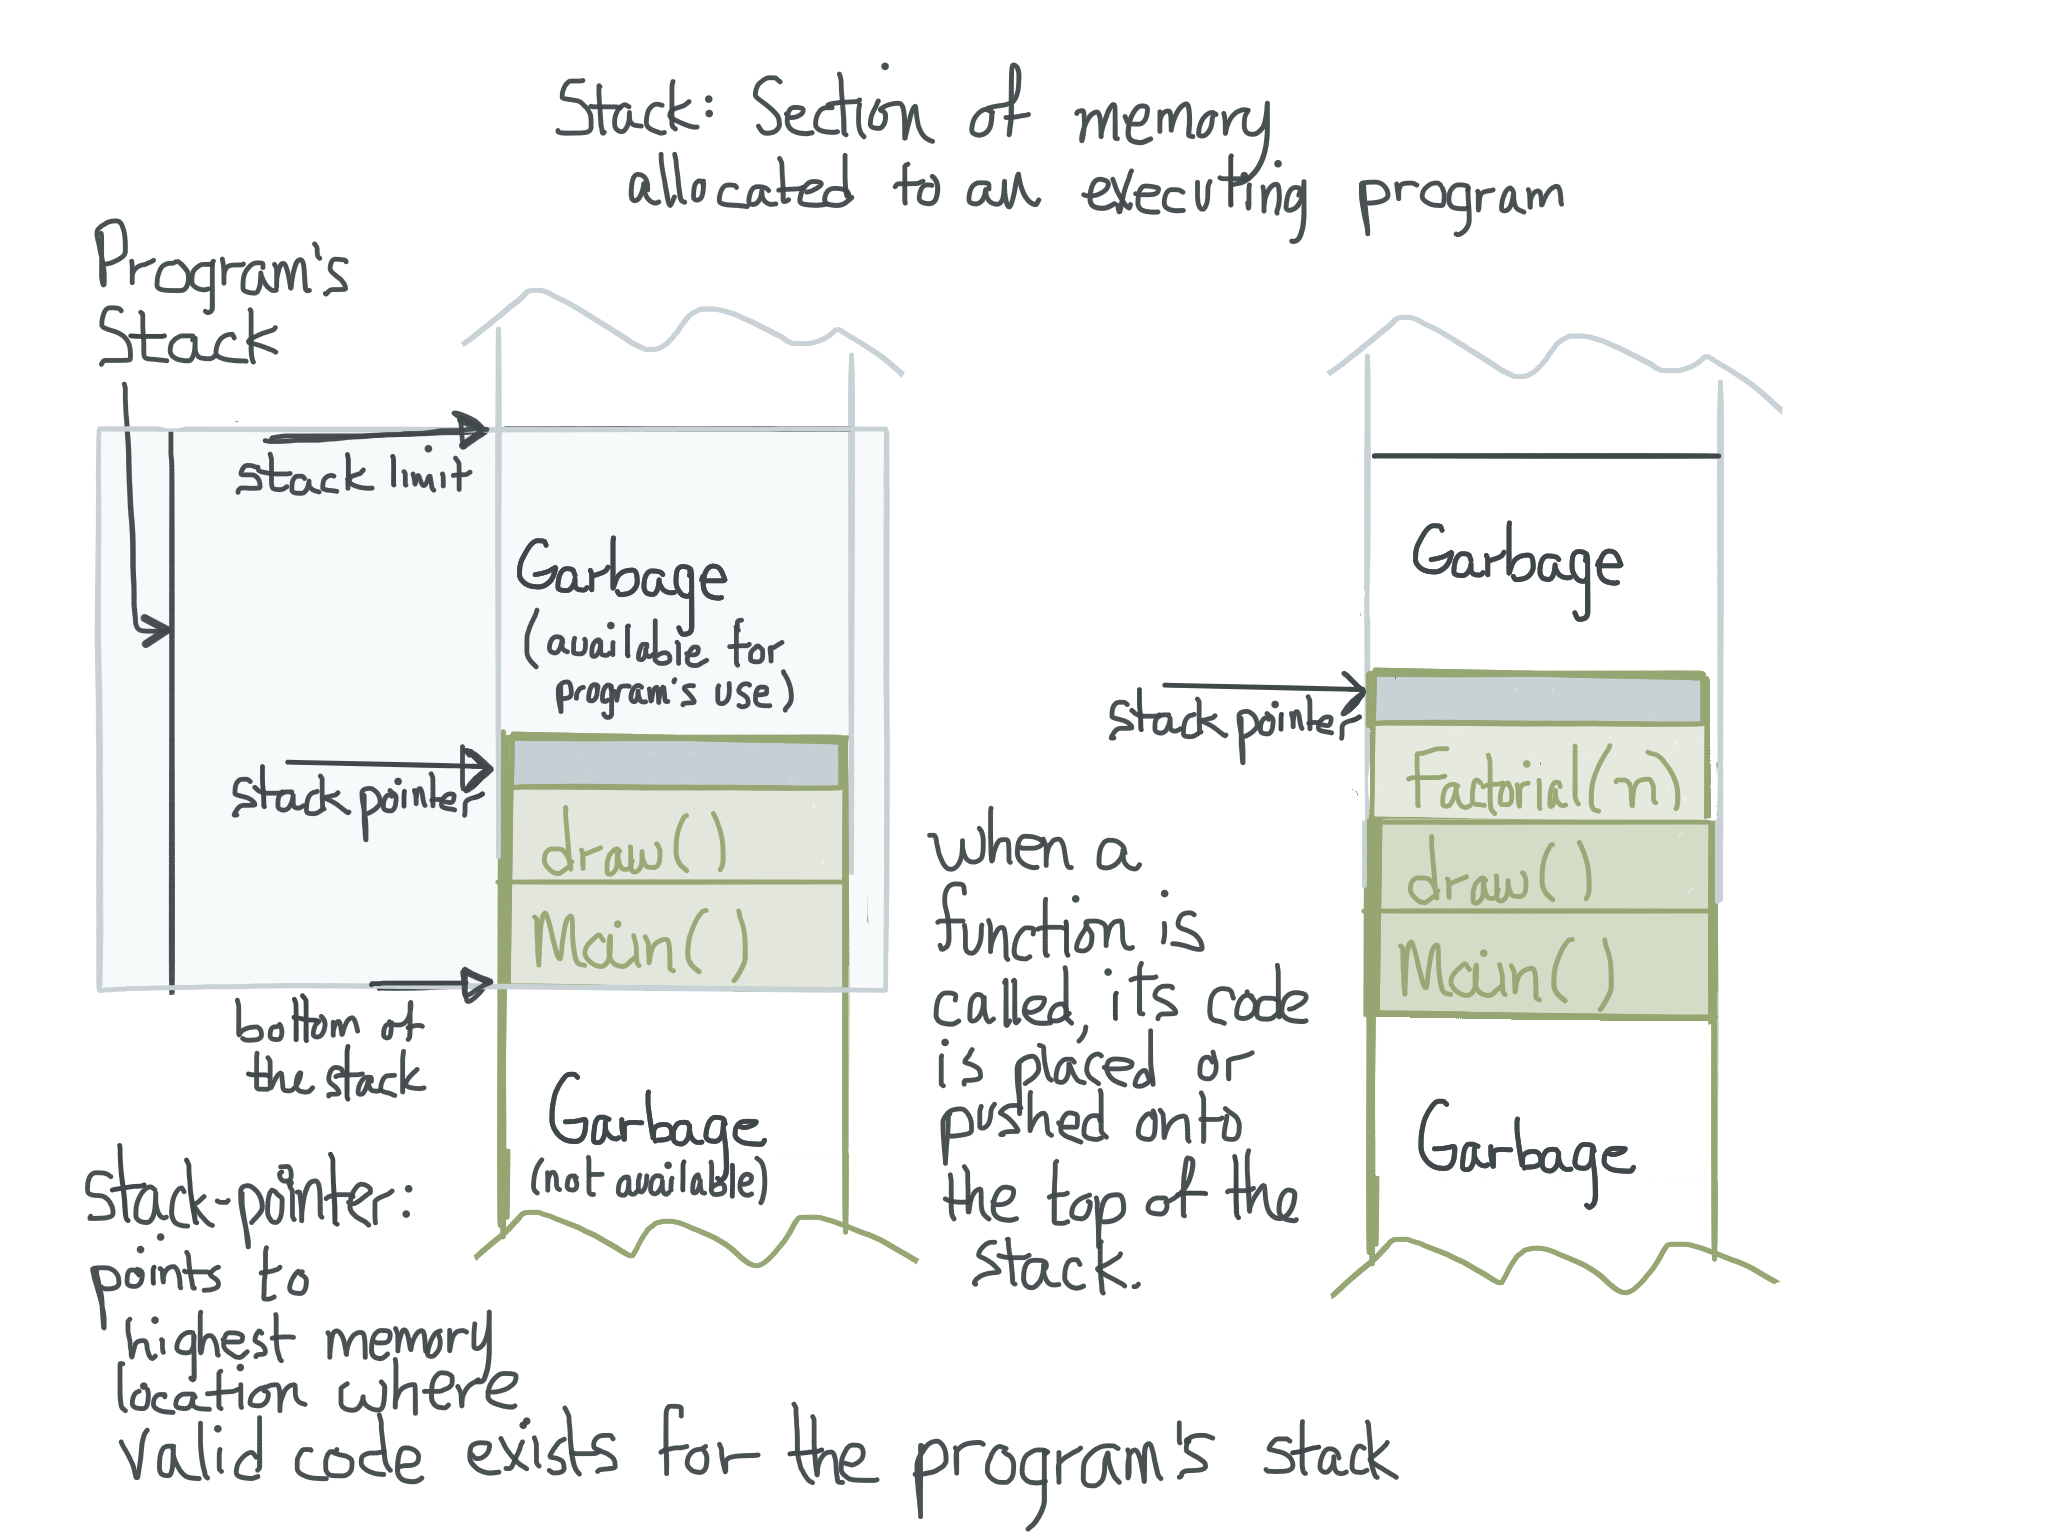 Stack: Section of memory
allocated to an executing program
Program's
Stack
stack limit
Garbage
(available for
program's use)
stack pointer
draw()
Main()
bottom of
the stack
Garbage
(not available)
Stack-pointer:
points to
highest memory
location where
valid code exists for the program's stack
when a
function is
called, its code
is placed or
pushed onto
the top of the
stack.
Garbage
stack pointer
Factorial(n)
draw()
Main()
Garbage